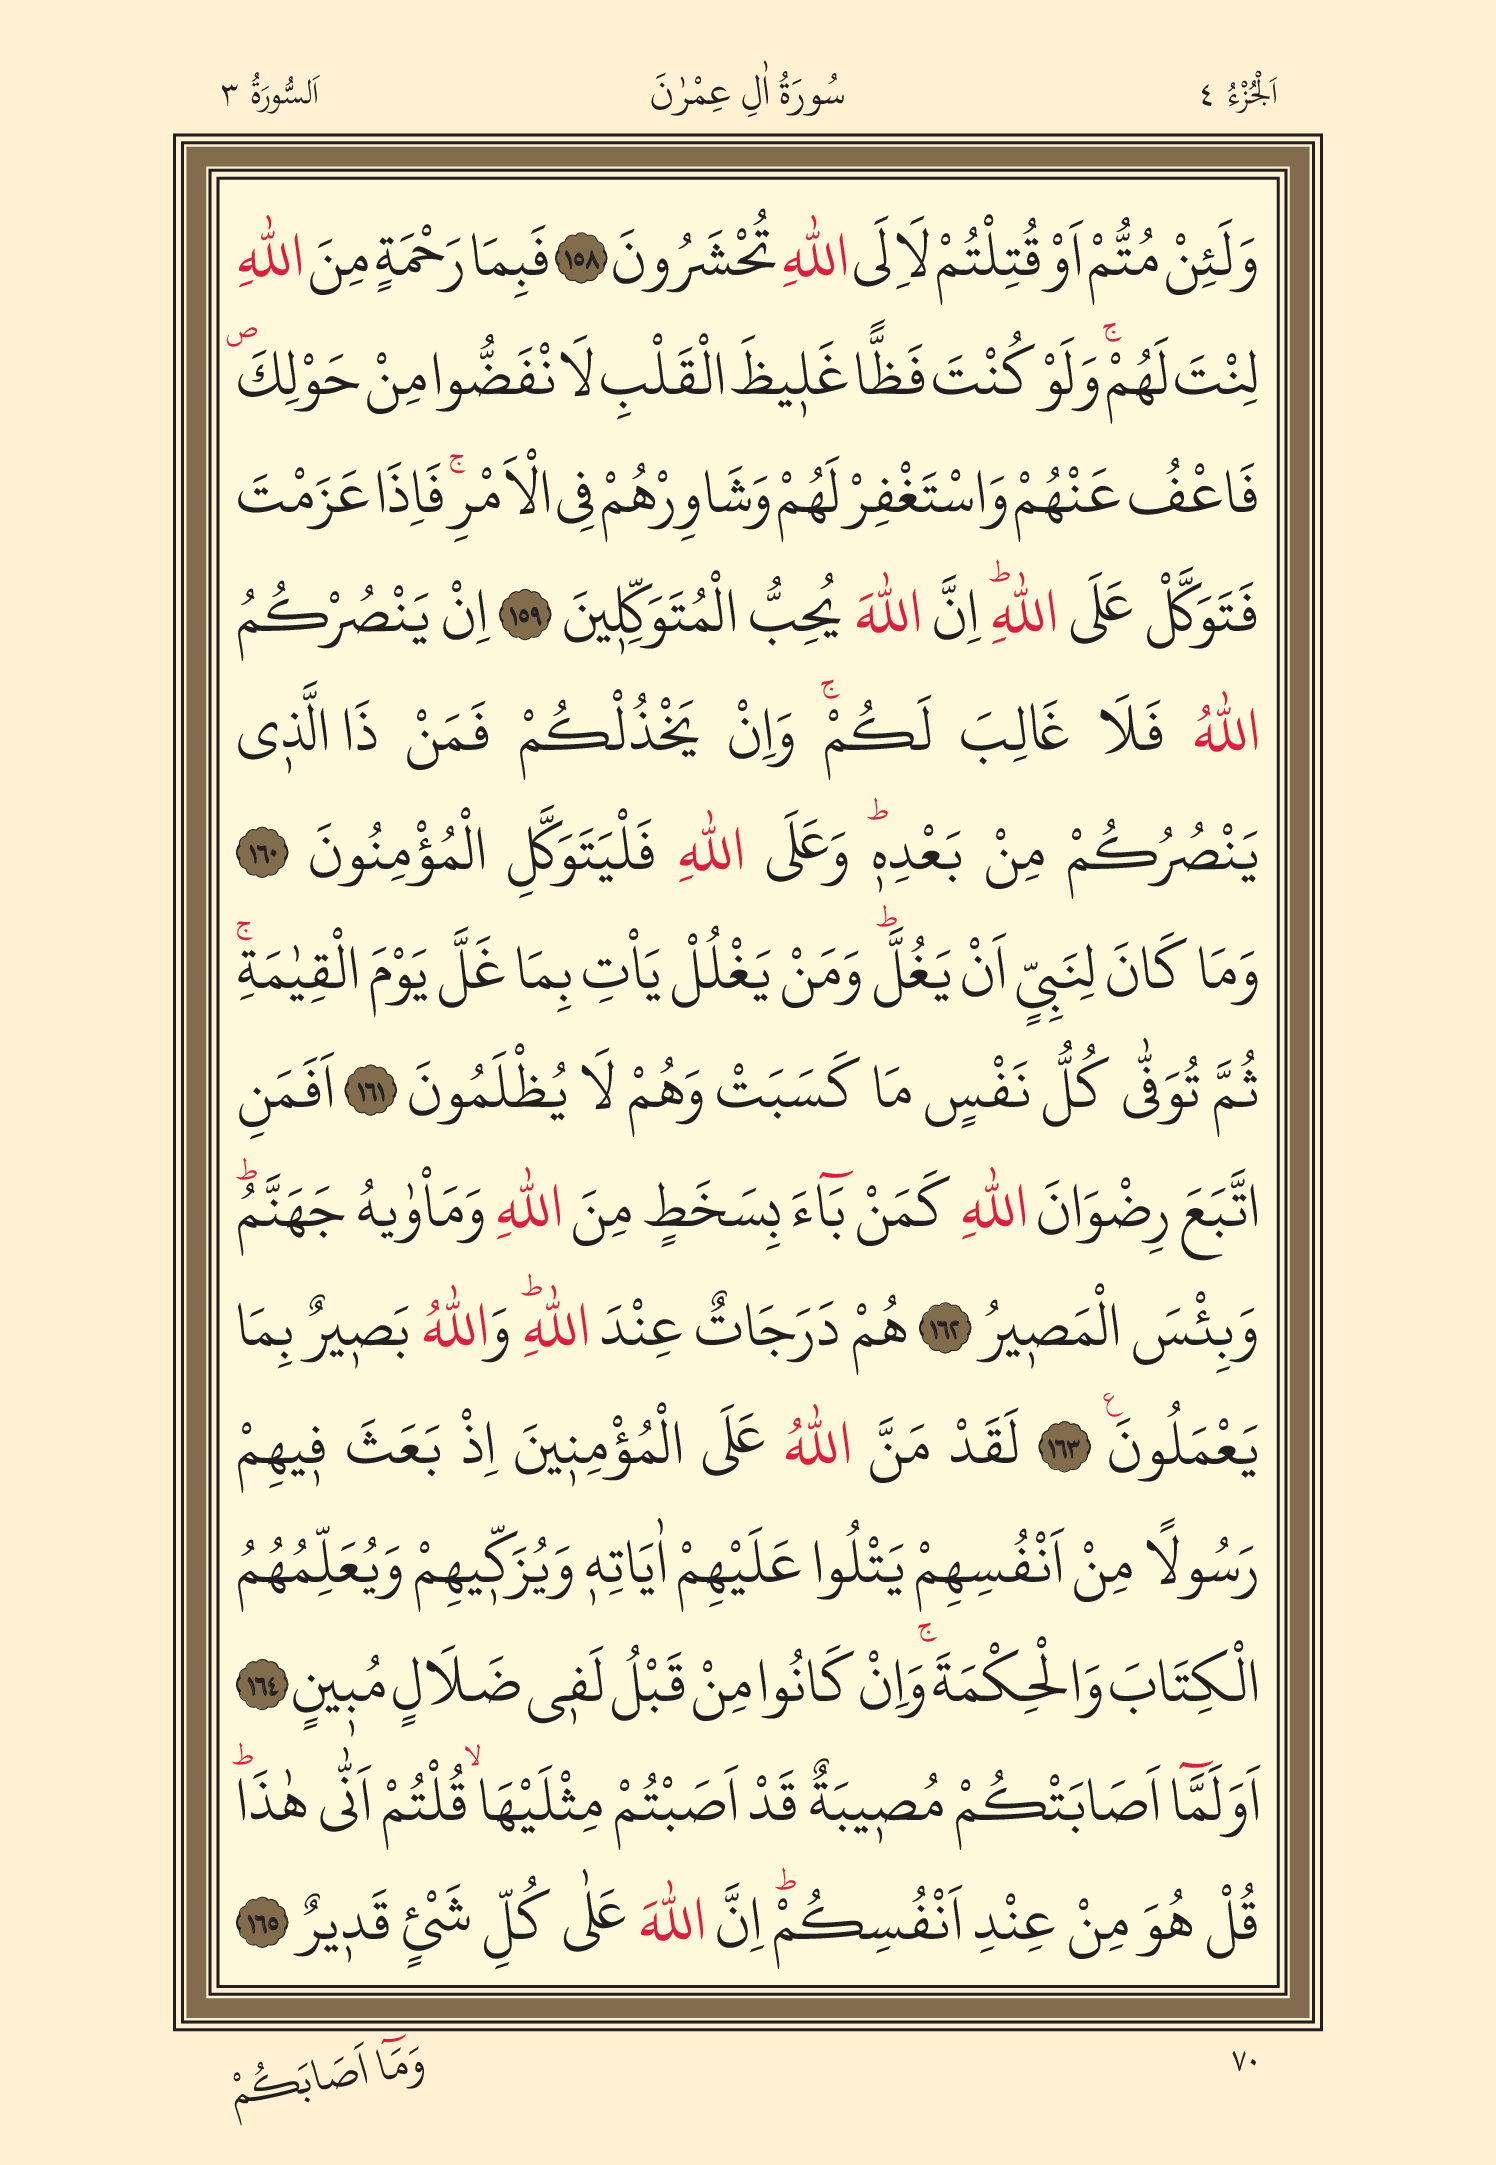 اَلْجُزْءُ ٤
سُورَةُ اٰلِ عِمْرٰنَ
اَلسُّورَةُ ٣
وَلَئِنْ مُتُّمْ اَوْ قُتِلْتُمْ لَاِلَى اللّٰهِ تُحْشَرُونَ ﴿١٥٨﴾ فَبِمَا رَحْمَةٍ مِنَ اللّٰهِ
لِنْتَ لَهُمْۚ وَلَوْ كُنْتَ فَظًّا غَل۪يظَ الْقَلْبِ لَانْفَضُّوا مِنْ حَوْلِكَۖ
فَاعْفُ عَنْهُمْ وَاسْتَغْفِرْ لَهُمْ وَشَاوِرْهُمْ فِى الْاَمْرِۚ فَاِذَا عَزَمْتَ
فَتَوَكَّلْ عَلَى اللّٰهِۜ اِنَّ اللّٰهَ يُحِبُّ الْمُتَوَكِّل۪ينَ ﴿١٥٩﴾ اِنْ يَنْصُرْكُمُ
اللّٰهُ فَلَا غَالِبَ لَكُمْۚ وَاِنْ يَخْذُلْكُمْ فَمَنْ ذَا الَّذ۪ى
يَنْصُرُكُمْ مِنْ بَعْدِه۪ۜ وَعَلَى اللّٰهِ فَلْيَتَوَكَّلِ الْمُؤْمِنُونَ ﴿١٦٠﴾
وَمَا كَانَ لِنَبِيٍّ اَنْ يَغُلَّۜ وَمَنْ يَغْلُلْ يَاْتِ بِمَا غَلَّ يَوْمَ الْقِيٰمَةِۚ
ثُمَّ تُوَفّٰى كُلُّ نَفْسٍ مَا كَسَبَتْ وَهُمْ لَا يُظْلَمُونَ ﴿١٦١﴾ اَفَمَنِ
اتَّبَعَ رِضْوَانَ اللّٰهِ كَمَنْ بَٓاءَ بِسَخَطٍ مِنَ اللّٰهِ وَمَاْوٰيهُ جَهَنَّمُۜ
وَبِئْسَ الْمَص۪يرُ ﴿١٦٢﴾ هُمْ دَرَجَاتٌ عِنْدَ اللّٰهِۜ وَاللّٰهُ بَص۪يرٌ بِمَا
يَعْمَلُونَ ع ﴿١٦٣﴾ لَقَدْ مَنَّ اللّٰهُ عَلَى الْمُؤْمِن۪ينَ اِذْ بَعَثَ ف۪يهِمْ
رَسُولًا مِنْ اَنْفُسِهِمْ يَتْلُوا عَلَيْهِمْ اٰيَاتِه۪ وَيُزَكّ۪يهِمْ وَيُعَلِّمُهُمُ
الْكِتَابَ وَالْحِكْمَةَۚ وَاِنْ كَانُوا مِنْ قَبْلُ لَف۪ى ضَلَالٍ مُب۪ينٍ ﴿١٦٤﴾
اَوَلَمَّٓا اَصَابَتْكُمْ مُص۪يبَةٌ قَدْ اَصَبْتُمْ مِثْلَيْهَاۙ قُلْتُمْ اَنّٰى هٰذَاۜ
قُلْ هُوَ مِنْ عِنْدِ اَنْفُسِكُمْۜ اِنَّ اللّٰهَ عَلٰى كُلِّ شَيْئٍ قَد۪يرٌ ﴿١٦٥﴾
٧٠
وَمَٓا اَصَابَكُمْ